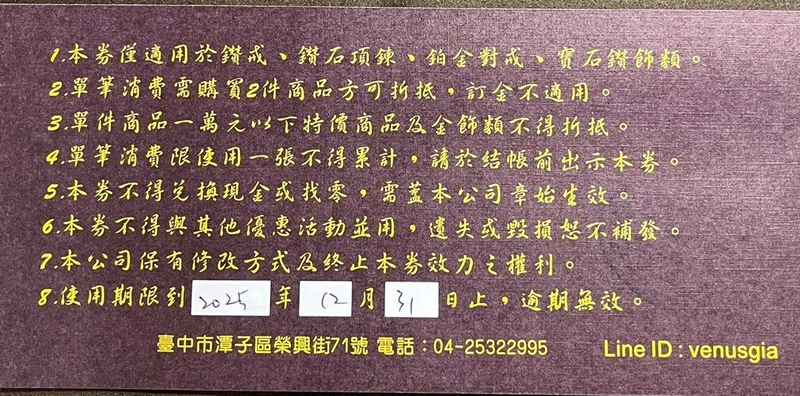 1.本券僅適用於鑽戒、鑽石項鍊、鉑金對戒、寶石鑽飾類。
2.單筆消費需購買2件商品方可折抵，訂金不適用。
3.單件商品一萬元以下特價商品及金飾類不得折抵。
4.單筆消費限使用一張不得累計，請於結帳前出示本券。
5.本券不得兌換現金或找零，需蓋本公司章始生效。
6.本券不得與其他優惠活動並用，遺失或毀損恕不補發。
7.本公司保有修改方式及終止本券效力之權利。
8.使用期限到 2025 年 12 月 31 日止，逾期無效。
臺中市潭子區榮興街71號 電話：04-25322995 Line ID : venusgia